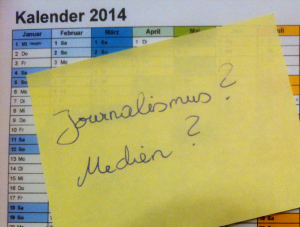 Kalender 2014
Januar Februar März April
1 Mi 1 Sa 1 Sa 1 Di
2 Do 2 So 2 So
3 Fr 3 Mo
4 Sa
5 So
6 Mo
7 Di
8 Mi
9 Do
10 Fr
11 Sa
12 So
13 Mo
14 Di
15 Mi
16 Do
17 Fr
18 Sa
Journalismus?
Medien?